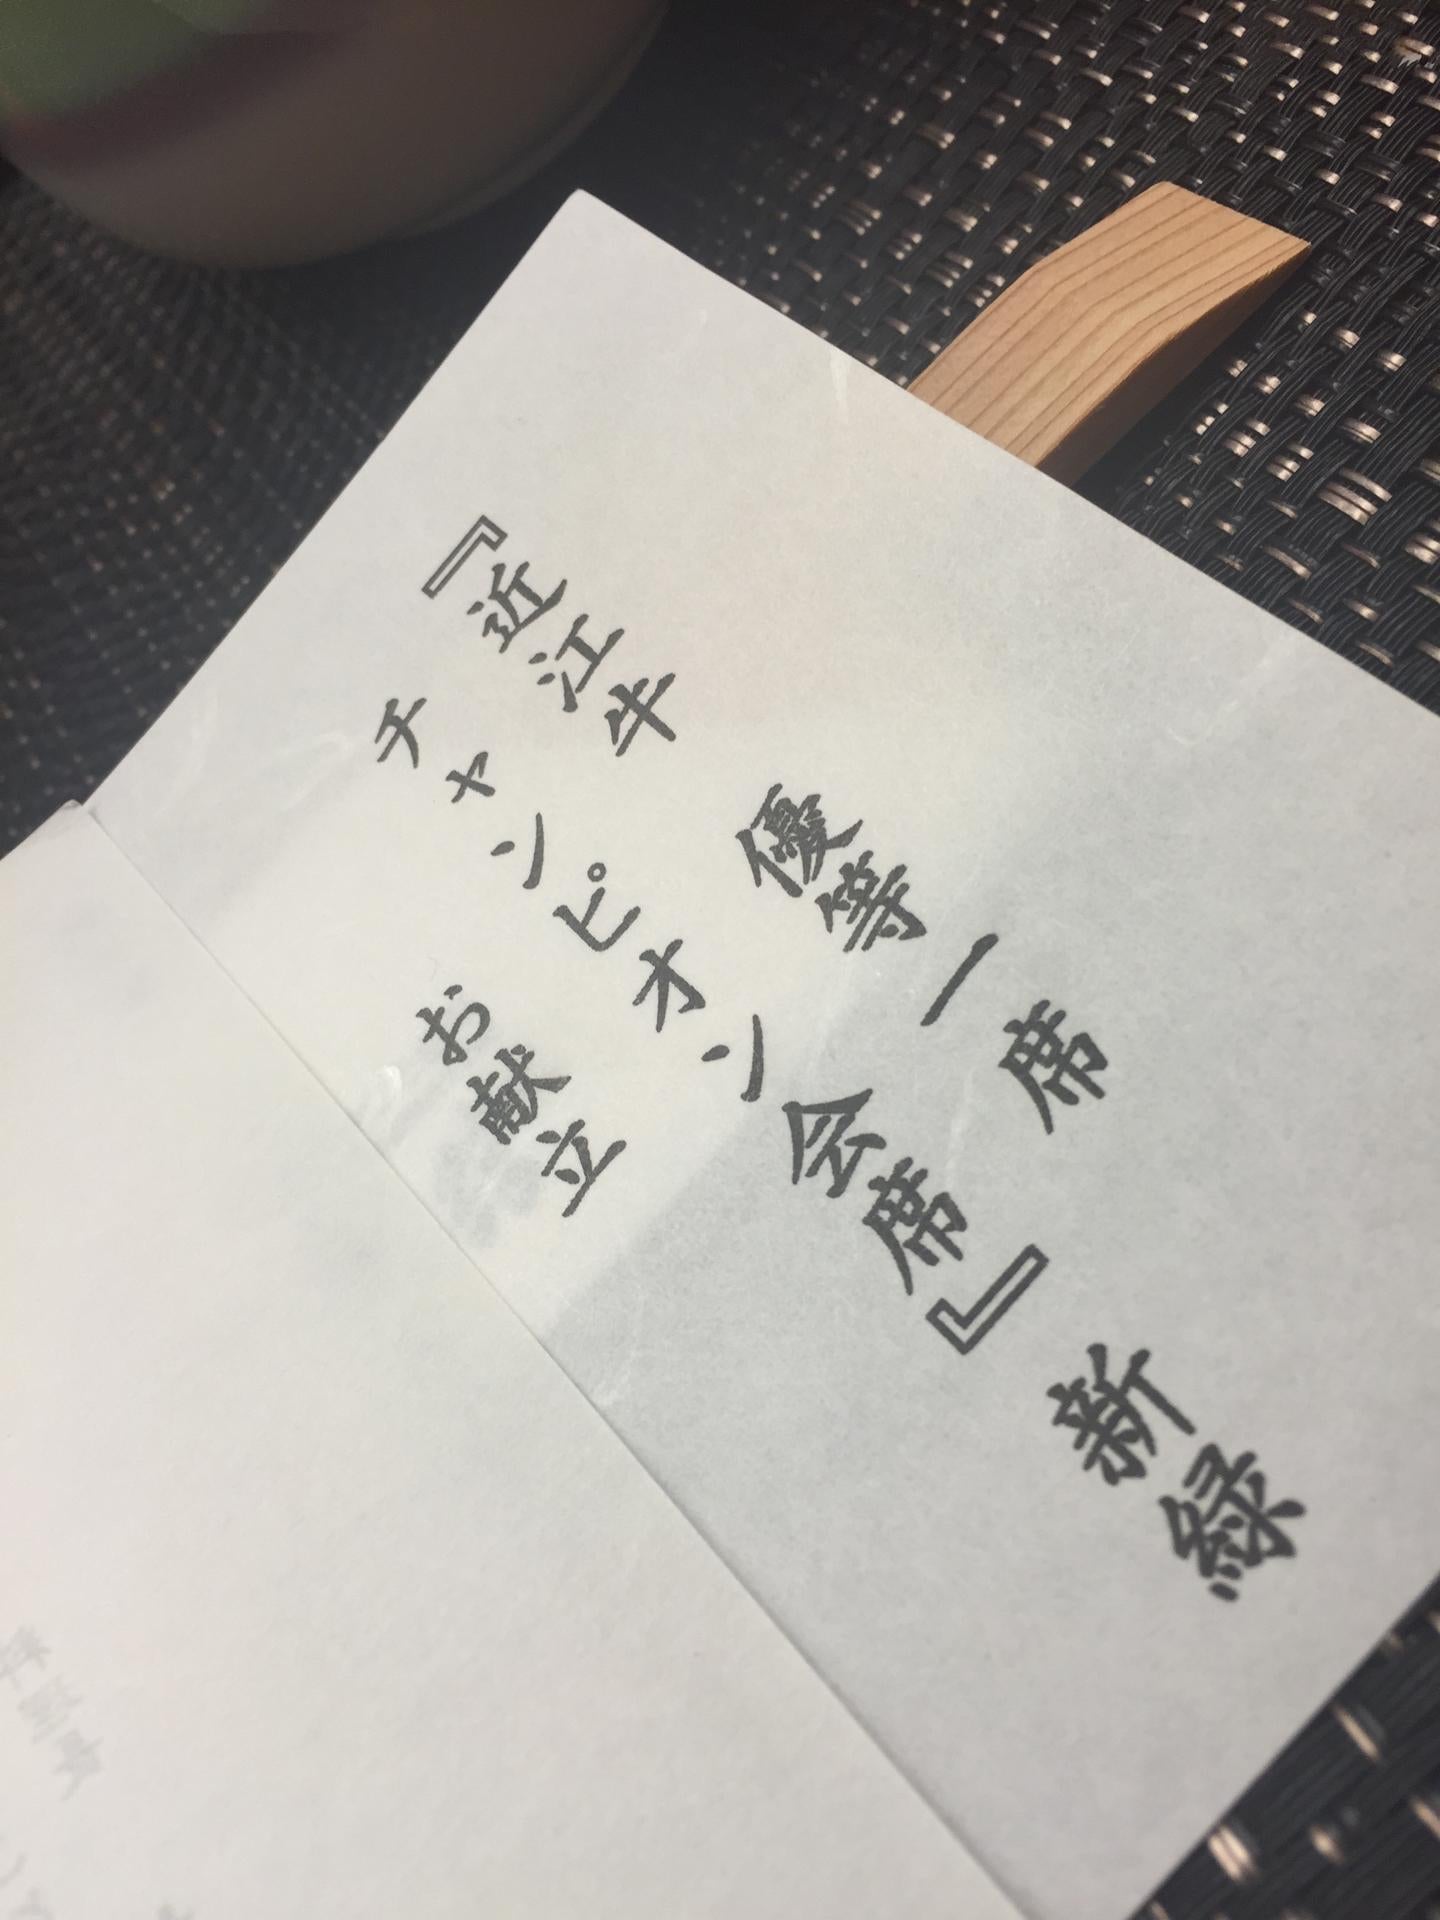 『近江牛 優等一席
チャンピオン会席』新緑
お献立
料理長